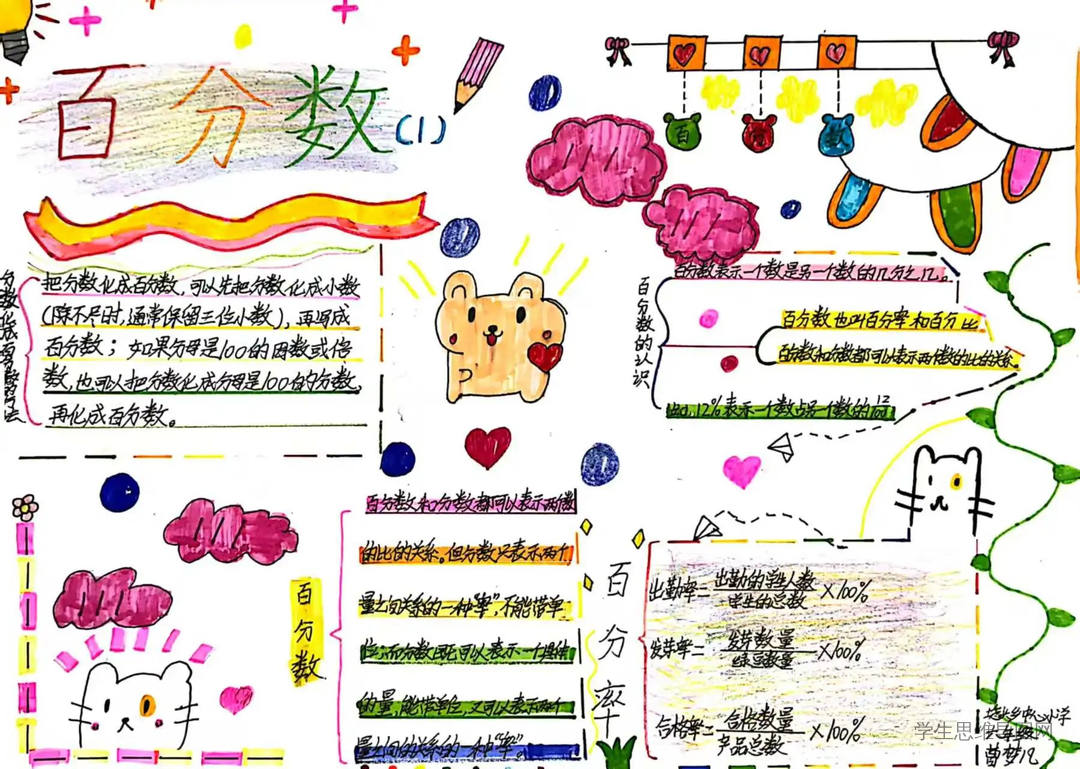 百分数(1)
百
分
数
分数化成百分数的方法
把分数化成百分数,可以先把分数化成小数
(除不尽时,通常保留三位小数),再写成
百分数;如果分母是100的因数或倍
数,也可以把分数化成分母是100的分数,
再化成百分数。
百分数的认识
百分数表示一个数是另一个数的几分之几。
百分数也叫百分率和百分比
百分数和分数都可以表示两个数的比的关系。
12%表示一个数占另一个数的12/100
百分数
百分数和分数都可以表示两个数
的比的关系。但分数只表示两个
量之间关系的一种“率”,不能带单
位;而分数既可以表示一个具体
的量,能带单位,又可以表示两个
量之间的关系的一种“率”。
百分率
出勤率=出勤的学生人数/学生的总数×100%
发芽率=发芽数量/绿豆数量×100%
合格率=合格数量/产品总数×100%
中心小学
六年级
曾梦凡
学生思维导图网